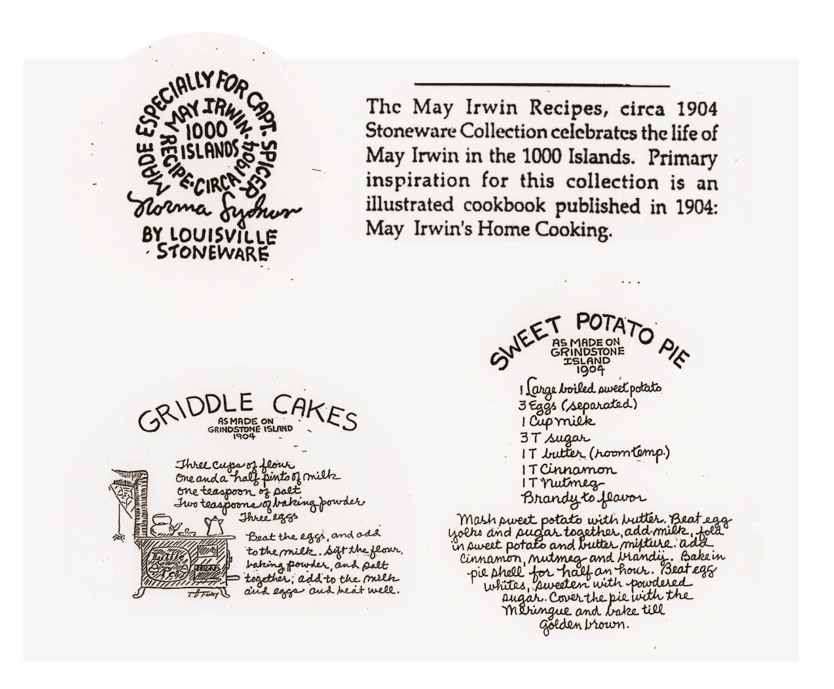 MADE ESPECIALLY FOR CAPT. SPICER
MAY IRWIN·1904
RECIPE·CIRCA
1000
ISLANDS
Norma
BY LOUISVILLE
STONEWARE
The May Irwin Recipes, circa 1904
Stoneware Collection celebrates the life of
May Irwin in the 1000 Islands. Primary
inspiration for this collection is an
illustrated cookbook published in 1904:
May Irwin's Home Cooking.
GRIDDLE CAKES
AS MADE ON
GRINDSTONE ISLAND
1904
Three cups of flour
One and a half pints of milk
One teaspoon of salt
Two teaspoons of baking powder
Three eggs
Beat the eggs, and add
to the milk. Sift the flour,
baking powder, and salt
together; add to the milk
and eggs and beat well.
SWEET POTATO PIE
AS MADE ON
GRINDSTONE
ISLAND
1904
1 Large boiled sweet potato
3 Eggs (separated)
1 Cup milk
3 T sugar
1 T butter (room temp.)
1 T Cinnamon
1 T Nutmeg
Brandy to flavor
Mash sweet potato with butter. Beat egg
yolks and sugar together, add milk, fold
in sweet potato and butter mixture. add
Cinnamon, nutmeg and brandy. Bake in
pie shell for half an hour. Beat egg
whites, sweeten with powdered
sugar. Cover the pie with the
Meringue and bake till
golden brown.